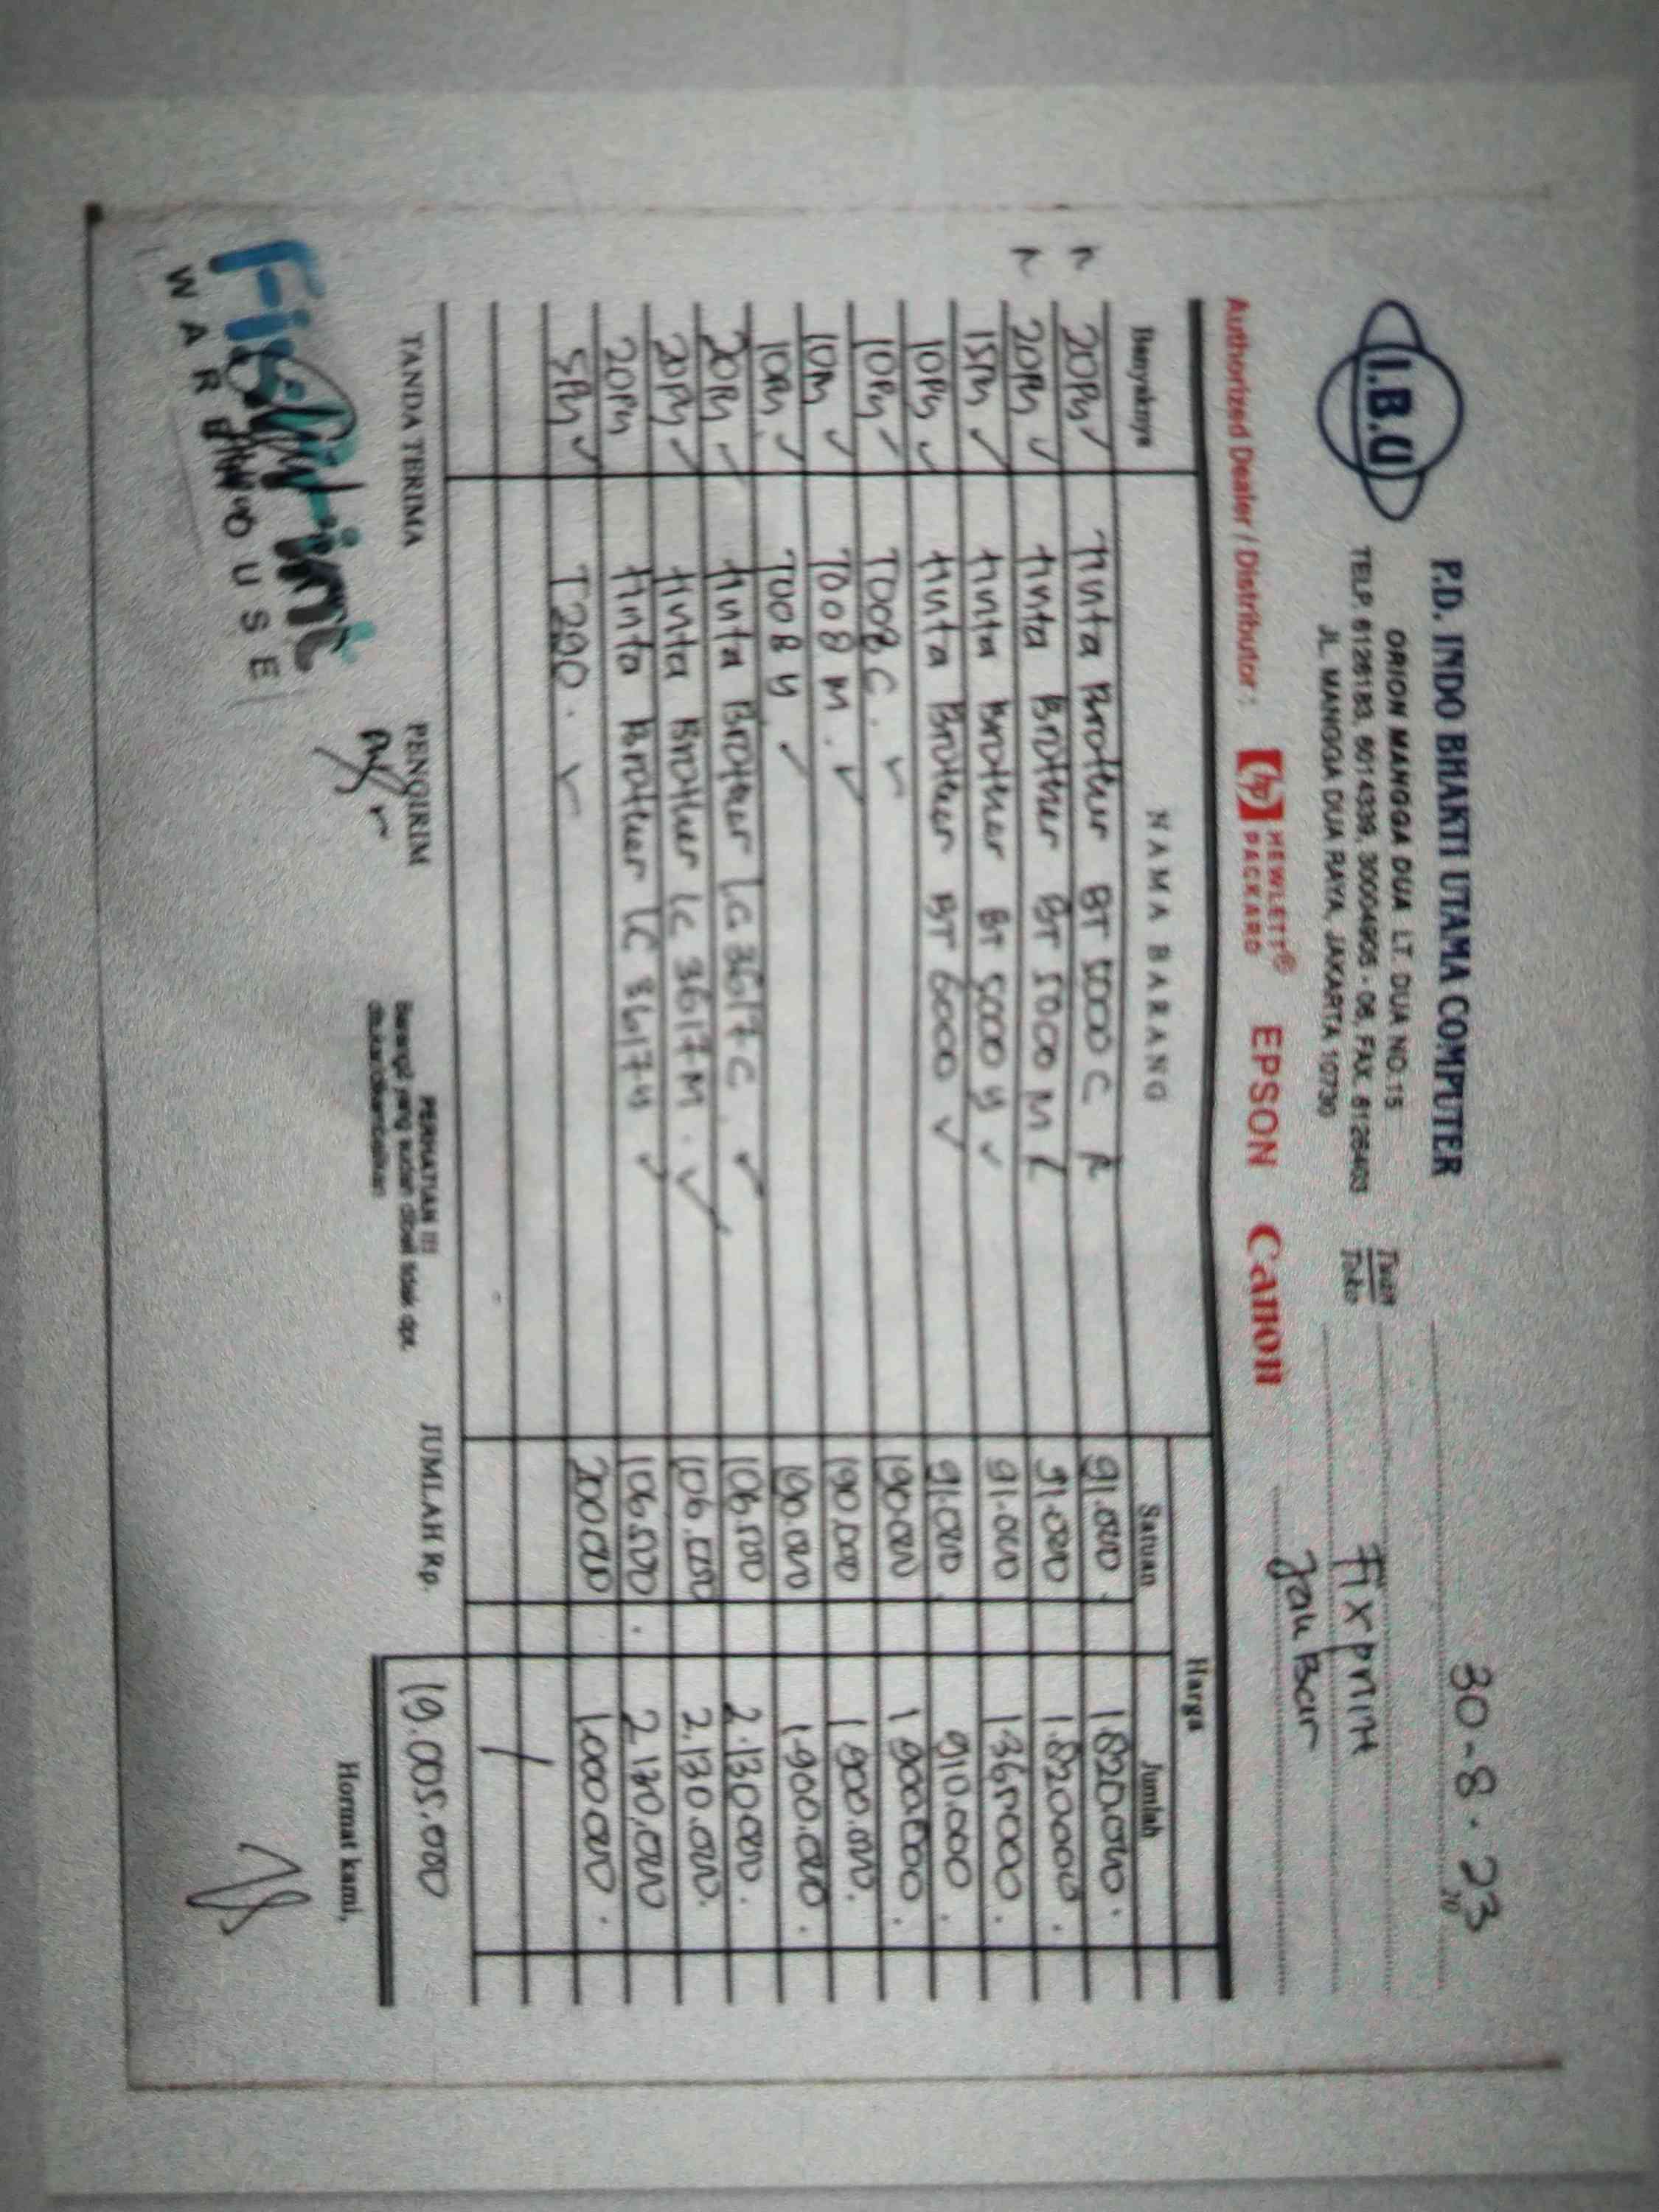 P.D. INDO BHAKTI UTAMA COMPUTER
ORION MANGGA DUA LT. DUA NO.15
TELP. 6126183, 6014339, 30004905 - 06, FAX. 6126403
JL. MANGGA DUA RAYA, JAKARTA 10730
I.B.U
30-8-23
20
Tuan
Toko
Fixprint
JakBar
Authorized Dealer / Distributor :
hp HEWLETT® PACKARD EPSON Canon
Banyaknya NAMA BARANG Harga
Satuan Jumlah
20Pcs Tinta Brother BT 5000 C 91.000 1.820.000
20Pcs Tinta Brother BT 5000 M 91.000 1.820.000
15Pcs Tinta Brother BT 5000 Y 91.000 1.365.000
10Pcs Tinta Brother BT 6000 91.000 910.000
10Pcs T008 C 190.000 1.900.000
10Pcs T008 M 190.000 1.900.000
10Pcs T008 Y 190.000 1.900.000
20Pcs Tinta Brother LC 3617 C 106.500 2.130.000
20Pcs Tinta Brother LC 3617 M 106.500 2.130.000
20Pcs Tinta Brother LC 3617 Y 106.500 2.130.000
5Pcs T290 200.000 1.000.000
TANDA TERIMA PENGIRIM PERHATIAN !!! JUMLAH Rp. 19.005.000
Barang2 yang sudah dibeli tidak dpt.
Hormat kami,
Fixprint
WAREHOUSE